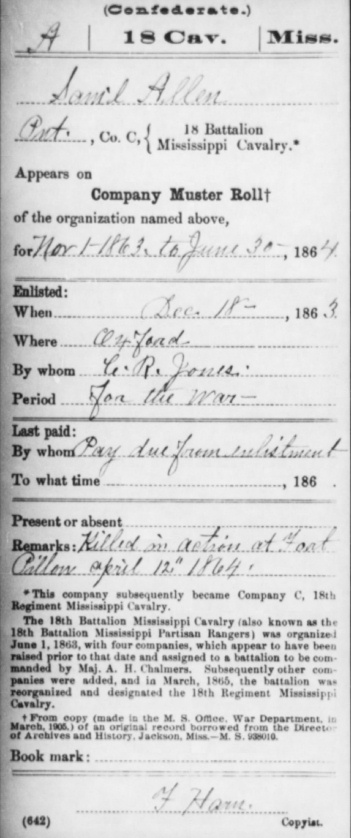 (Confederate.)
A | 18 Cav. | Miss.
Sam'l Allen
Pvt., Co. C, { 18 Battalion
Mississippi Cavalry.*
Appears on
Company Muster Roll†
of the organization named above,
for Nov 1 - 1863. to June 30 -, 1864.
Enlisted:
When Dec. 18 -, 1863
Where Oxford
By whom C. R. Jones.
Period for the war -
Last paid:
By whom Pay due from enlistment
To what time , 186 .
Present or absent
Remarks: Killed in action at Fort
Pillow April 12" 1864.
*This company subsequently became Company C, 18th
Regiment Mississippi Cavalry.
The 18th Battalion Mississippi Cavalry (also known as the
18th Battalion Mississippi Partisan Rangers) was organized
June 1, 1863, with four companies, which appear to have been
raised prior to that date and assigned to a battalion to be com-
manded by Maj. A. H. Chalmers. Subsequently other com-
panies were added, and in March, 1865, the battalion was
reorganized and designated the 18th Regiment Mississippi
Cavalry.
†From copy (made in the M. S. Office, War Department, in
March, 1905,) of an original record borrowed from the Director
of Archives and History, Jackson, Miss.—M. S. 938010.
Book mark:
F Harn.
(642) Copyist.